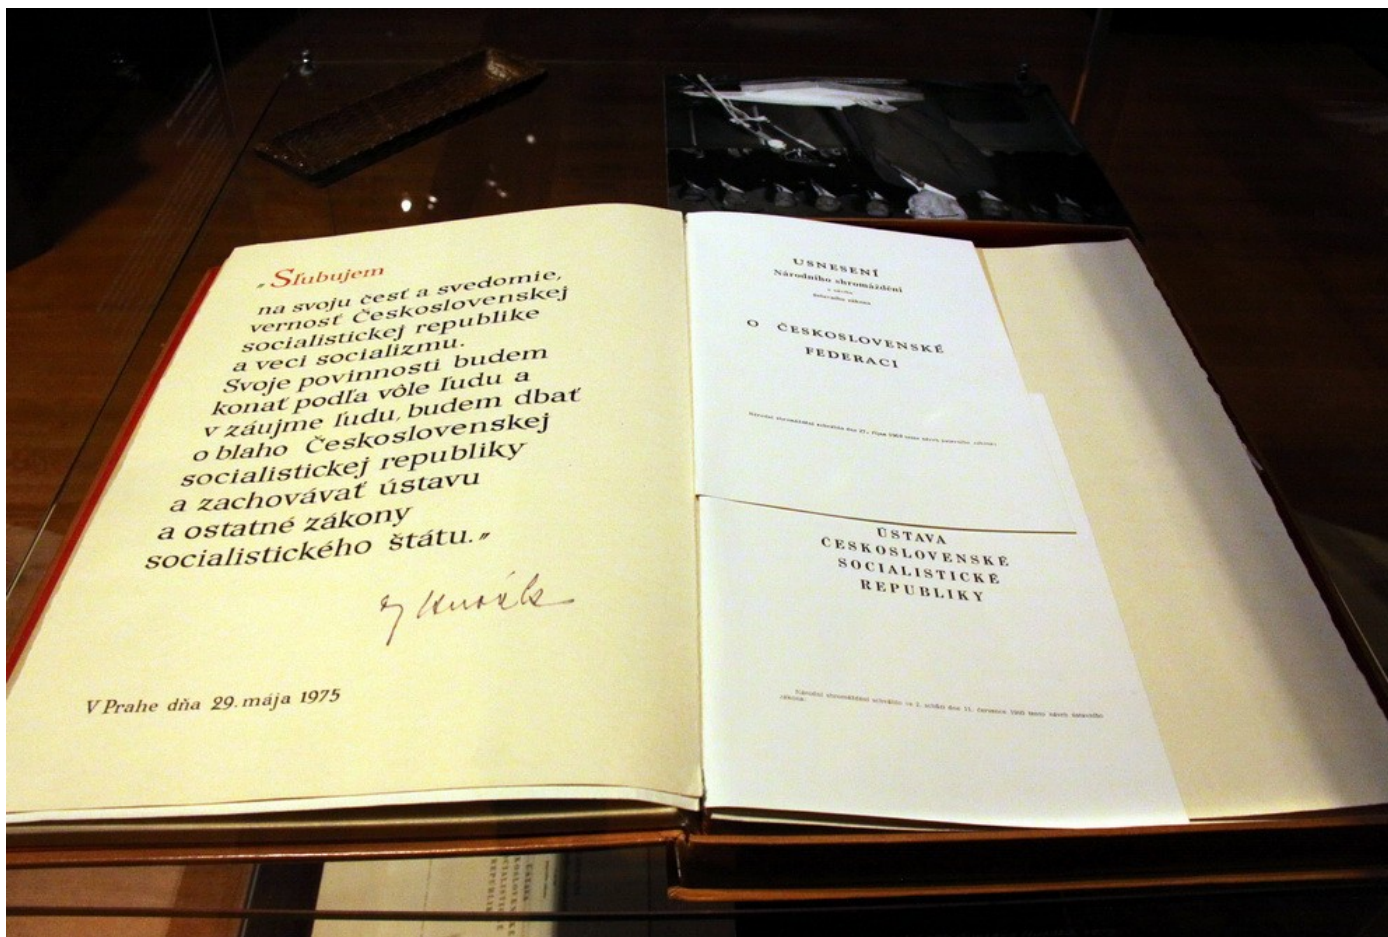 „Sľubujem
na svoju česť a svedomie,
vernosť Československej
socialistickej republike
a veci socializmu.
Svoje povinnosti budem
konať podľa vôle ľudu a
v záujme ľudu, budem dbať
o blaho Československej
socialistickej republiky
a zachovávať ústavu
a ostatné zákony
socialistického štátu.”
V Prahe dňa 29. mája 1975
USNESENÍ
Národního shromáždění
O ČESKOSLOVENSKÉ
FEDERACI
Národní shromáždění schválilo dne 27. října 1968 tento návrh ústavního zákona:
ÚSTAVA
ČESKOSLOVENSKÉ
SOCIALISTICKÉ
REPUBLIKY
Národní shromáždění schválilo ve 2. schůzi dne 11. července 1960 tento návrh ústavního
zákona:
ÚSTAVA
ČESKOSLOVENSKÉ
SOCIALISTICKÉ
REPUBLIK